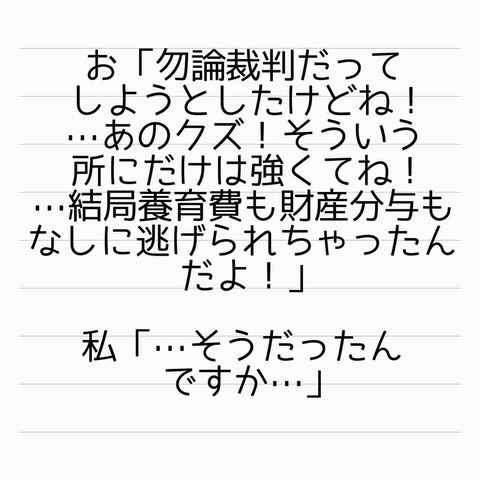 お「勿論裁判だって
しようとしたけどね！
…あのクズ！そういう
所にだけは強くてね！
…結局養育費も財産分与も
なしに逃げられちゃったん
だよ！」
私「…そうだったん
ですか…」